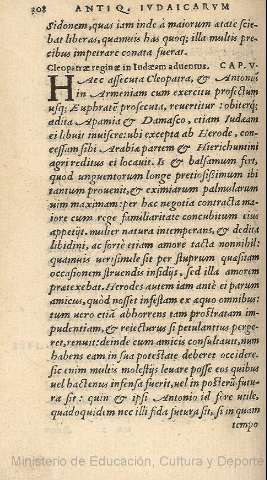 308 ANTIQ. IVDAICARVM
Sidonem, quas iam inde à maiorum ætate scie-
bat liberas, quamuis has quoq; illa multis pre-
cibus impetrare conata fuerat.
Cleopatræ reginæ in Iudæam aduentus. CAP. V.
HAEc assecuta Cleopatra, & Antoniũ
in Armeniam cum exercitu profectum
vsq; Euphratẽ prosecuta, reuertitur: obiterq;
adita Apamia & Damasco, etiam Iudæam
ei libuit inuisere: vbi excepta ab Herode, con-
cessam sibi Arabiæ partem & Hierichuntini
agri reditus ei locauit. Is & balsamum fert,
quod vnguentorum longe pretiosissimum ibi
tantum prouenit, & eximiarum palmularum
vim maximam: per hæc negotia contracta ma
iore cum rege familiaritate concubitum eius
appetijt. mulier natura intemperans, & dedita
libidini, ac fortè etiam amore tacta nonnihil:
quamuis verisimile sit per stuprum quæsitam
occasionem struendis insidijs, sed illa amorem
prætexebat. Herodes autem iam antè ei parum
amicus, quòd nosset infestam ex æquo omnibus:
tum verò etiã abhorrens tam prostratam im-
pudentiam, & reiecturus si petulantius perge-
ret, renuit: deinde cum amicis consultauit, num
habens eam in sua potestate deberet occidere.
sic enim multis molestijs leuare posse eos quibus
vel hactenus infensa fuerit, vel in posterũ futu-
ra sit: quin & ipsi Antonio id fore vtile,
quãdoquidem nec illi fida futura sit, si in quam
tempo
Ministerio de Educación, Cultura y Deporte